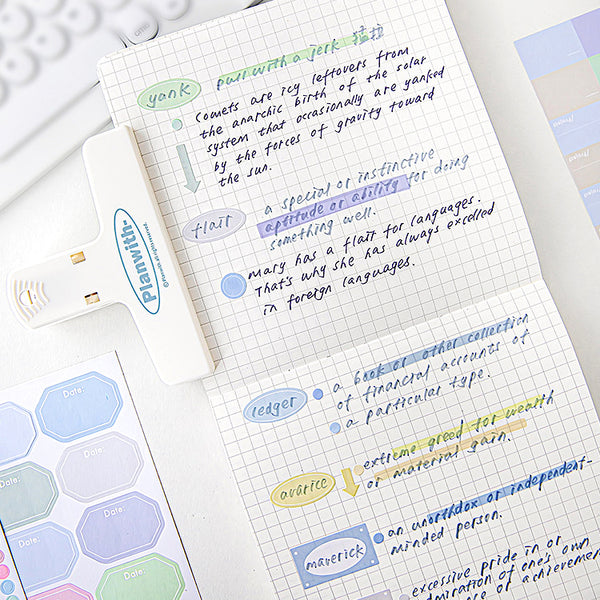 yank
pull with a jerk 猛拉
Comets are icy leftovers from
the anarchic birth of the solar
system that occasionally are yanked
by the forces of gravity toward
the sun.
flair
a special or instinctive
aptitude or ability for doing
something well.
Mary has a flait for languages.
That's why she has always excelled
in foreign languages.
Planwith-
ledger
a book or other collection
of financial accounts of
a particular type.
avarice
extreme greed for wealth
or material gain.
maverick
an unorthdox or independent-
minded person.
excessive pride in or
admiration of one's own
or achievemen
Date:
Date:
Date:
Date:
Date:
Date:
Project
Project